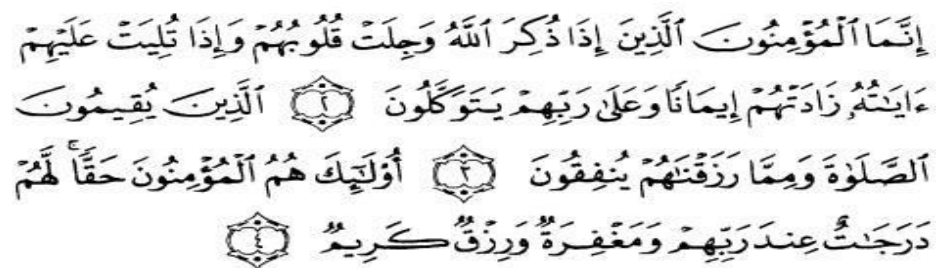 إِنَّمَا ٱلْمُؤْمِنُونَ ٱلَّذِينَ إِذَا ذُكِرَ ٱللَّهُ وَجِلَتْ قُلُوبُهُمْ وَإِذَا تُلِيَتْ عَلَيْهِمْ
ءَايَٰتُهُۥ زَادَتْهُمْ إِيمَٰنًا وَعَلَىٰ رَبِّهِمْ يَتَوَكَّلُونَ ٢ ٱلَّذِينَ يُقِيمُونَ
ٱلصَّلَوٰةَ وَمِمَّا رَزَقْنَٰهُمْ يُنفِقُونَ ٣ أُو۟لَٰٓئِكَ هُمُ ٱلْمُؤْمِنُونَ حَقًّا ۚ لَّهُمْ
دَرَجَٰتٌ عِندَ رَبِّهِمْ وَمَغْفِرَةٌ وَرِزْقٌ كَرِيمٌ ٤